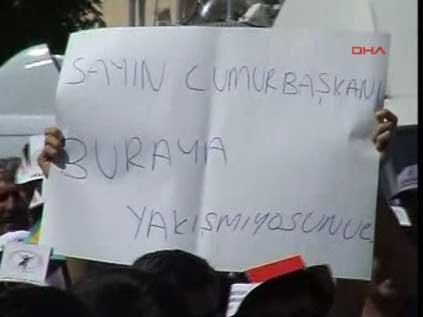 DHA
SAYIN CUMURBAŞKANI
BURAYA
YAKISMIYOSUNUZ